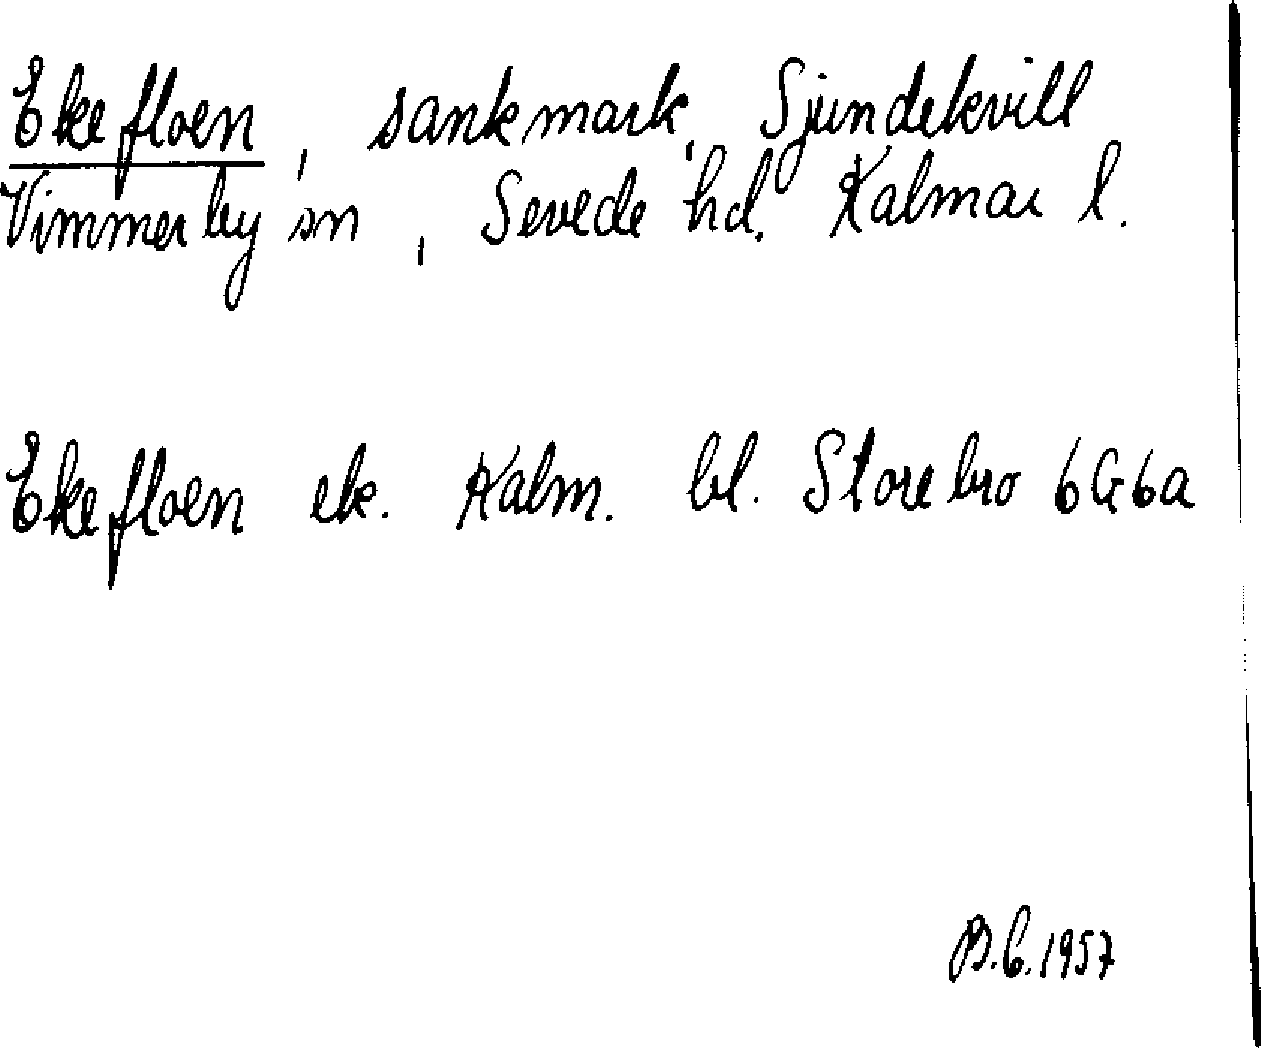 Ekefloen, sankmark, Sjundekvill
Vimmerby sn, Sevede hd. Kalmar l.
Ekefloen ek. Kalm. bl. Storebro 6G6a
B.C. 1957